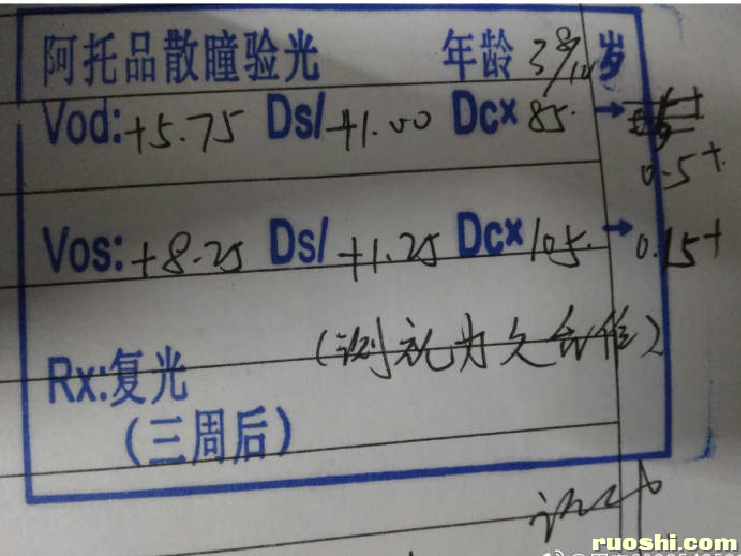 阿托品散瞳验光 年龄 3 8/12 岁
Vod: +5.75 Ds/ +1.00 Dc× 85. →
0.5+
Vos: +8.25 Ds/ +1.25 Dc× 105. → 0.15+
(测视力欠合作)
Rx:复光
(三周后)
ruoshi.com